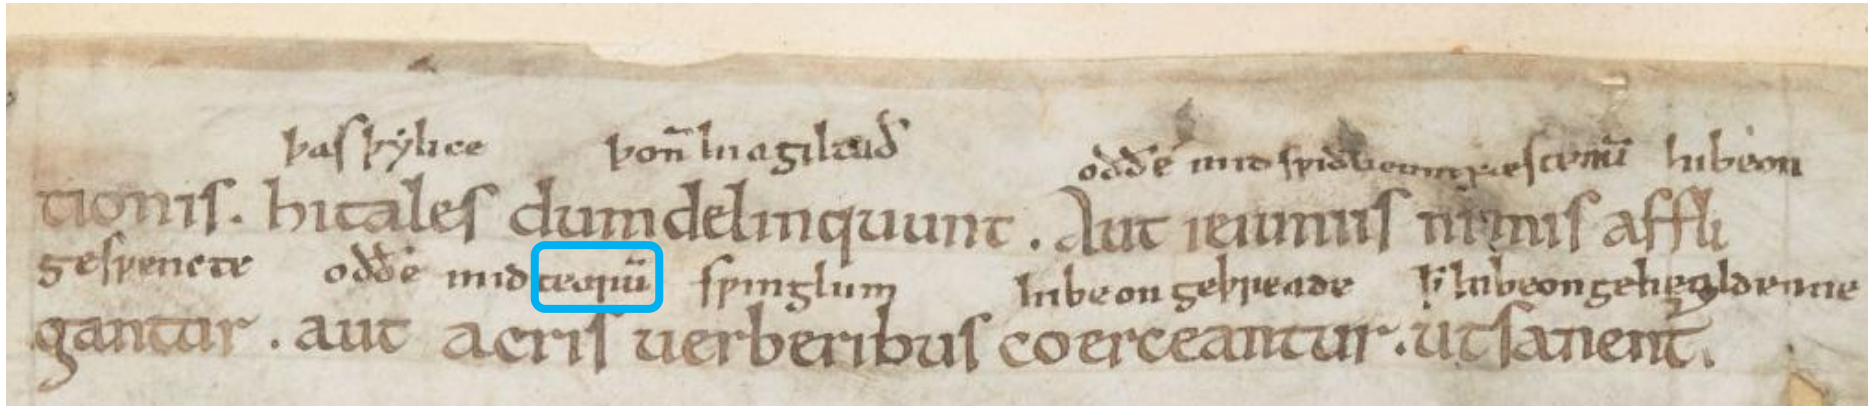 þas þẏlice þoñ hi agiltað oððe mid sƿiðlicum fæstenū hi beon
tionis. hi tales dum delinquunt. Aut ieiuniis nimis affli
gesƿencte oððe mid teartū sƿinglum hi beon geþreade þ̄ hi beon gehealdenne
gantur. aut acris uerberibus coerceantur. ut sanent̄.